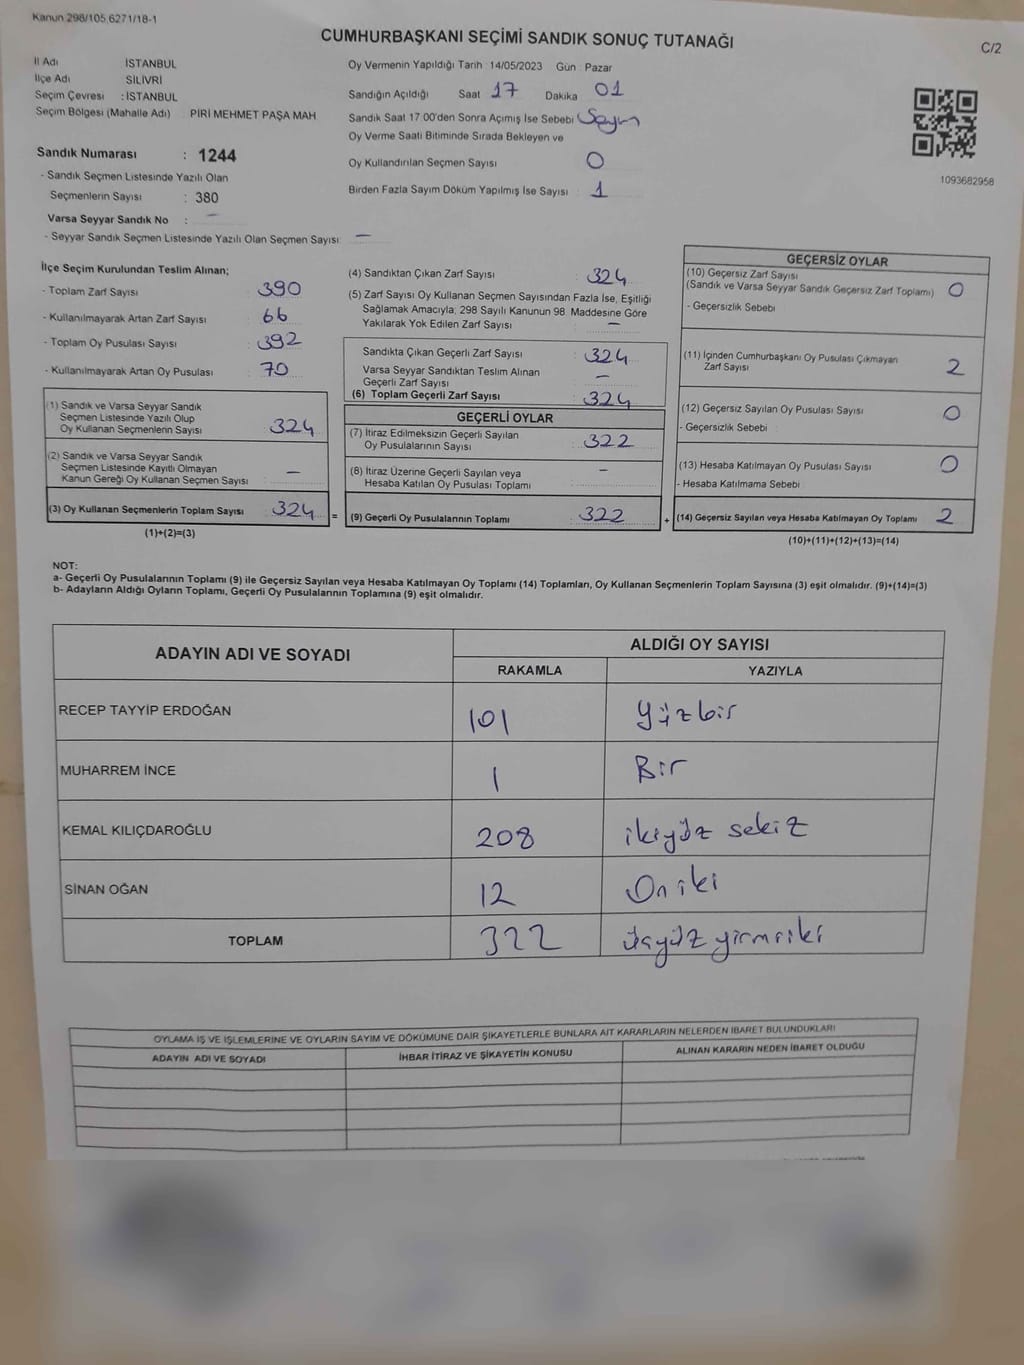 Kanun 298/105,6271/18-1
CUMHURBAŞKANI SEÇİMİ SANDIK SONUÇ TUTANAĞI
C/2
İl Adı İSTANBUL
İlçe Adı SİLİVRİ
Seçim Çevresi : İSTANBUL
Seçim Bölgesi (Mahalle Adı) PİRİ MEHMET PAŞA MAH
Sandık Numarası : 1244
- Sandık Seçmen Listesinde Yazılı Olan
Seçmenlerin Sayısı : 380
Varsa Seyyar Sandık No : –
- Seyyar Sandık Seçmen Listesinde Yazılı Olan Seçmen Sayısı: –
Oy Vermenin Yapıldığı Tarih : 14/05/2023 Gün : Pazar
Sandığın Açıldığı Saat 17 Dakika 01
Sandık Saat 17.00'den Sonra Açımış İse Sebebi Sayım
Oy Verme Saati Bitiminde Sırada Bekleyen ve
Oy Kullandırılan Seçmen Sayısı 0
Birden Fazla Sayım Döküm Yapılmış İse Sayısı : 1
1093682958
İlçe Seçim Kurulundan Teslim Alınan;
- Toplam Zarf Sayısı : 390
- Kullanılmayarak Artan Zarf Sayısı : 66
- Toplam Oy Pusulası Sayısı : 392
- Kullanılmayarak Artan Oy Pusulası : 70
(1) Sandık ve Varsa Seyyar Sandık
Seçmen Listesinde Yazılı Olup
Oy Kullanan Seçmenlerin Sayısı : 324
(2) Sandık ve Varsa Seyyar Sandık
Seçmen Listesinde Kayıtlı Olmayan
Kanun Gereği Oy Kullanan Seçmen Sayısı : –
(3) Oy Kullanan Seçmenlerin Toplam Sayısı : 324 =
(1)+(2)=(3)
(4) Sandıktan Çıkan Zarf Sayısı : 324
(5) Zarf Sayısı Oy Kullanan Seçmen Sayısından Fazla İse, Eşitliği
Sağlamak Amacıyla; 298 Sayılı Kanunun 98 Maddesine Göre
Yakılarak Yok Edilen Zarf Sayısı : –
Sandıkta Çıkan Geçerli Zarf Sayısı : 324
Varsa Seyyar Sandıktan Teslim Alınan
Geçerli Zarf Sayısı : –
(6) Toplam Geçerli Zarf Sayısı : 324
GEÇERLİ OYLAR
(7) İtiraz Edilmeksizin Geçerli Sayılan
Oy Pusulalarının Sayısı : 322
(8) İtiraz Üzerine Geçerli Sayılan veya
Hesaba Katılan Oy Pusulası Toplamı : –
(9) Geçerli Oy Pusulalarının Toplamı : 322 +
GEÇERSİZ OYLAR
(10) Geçersiz Zarf Sayısı
(Sandık ve Varsa Seyyar Sandık Geçersiz Zarf Toplamı) : 0
- Geçersizlik Sebebi
(11) İçinden Cumhurbaşkanı Oy Pusulası Çıkmayan
Zarf Sayısı 2
(12) Geçersiz Sayılan Oy Pusulası Sayısı 0
- Geçersizlik Sebebi
(13) Hesaba Katılmayan Oy Pusulası Sayısı 0
- Hesaba Katılmama Sebebi
(14) Geçersiz Sayılan veya Hesaba Katılmayan Oy Toplamı 2
(10)+(11)+(12)+(13)=(14)
NOT:
a- Geçerli Oy Pusulalarının Toplamı (9) ile Geçersiz Sayılan veya Hesaba Katılmayan Oy Toplamı (14) Toplamları, Oy Kullanan Seçmenlerin Toplam Sayısına (3) eşit olmalıdır. (9)+(14)=(3)
b- Adayların Aldığı Oyların Toplamı, Geçerli Oy Pusulalarının Toplamına (9) eşit olmalıdır.
ADAYIN ADI VE SOYADI ALDIĞI OY SAYISI
RAKAMLA YAZIYLA
RECEP TAYYİP ERDOĞAN 101 yüzbir
MUHARREM İNCE 1 Bir
KEMAL KILIÇDAROĞLU 208 ikiyüz sekiz
SİNAN OĞAN 12 On iki
TOPLAM 322 üçyüz yirmiiki
OYLAMA İŞ VE İŞLEMLERİNE VE OYLARIN SAYIM VE DÖKÜMÜNE DAİR ŞİKAYETLERLE BUNLARA AİT KARARLARIN NELERDEN İBARET BULUNDUKLARI
ADAYIN ADI VE SOYADI İHBAR İTİRAZ VE ŞİKAYETİN KONUSU ALINAN KARARIN NEDEN İBARET OLDUĞU